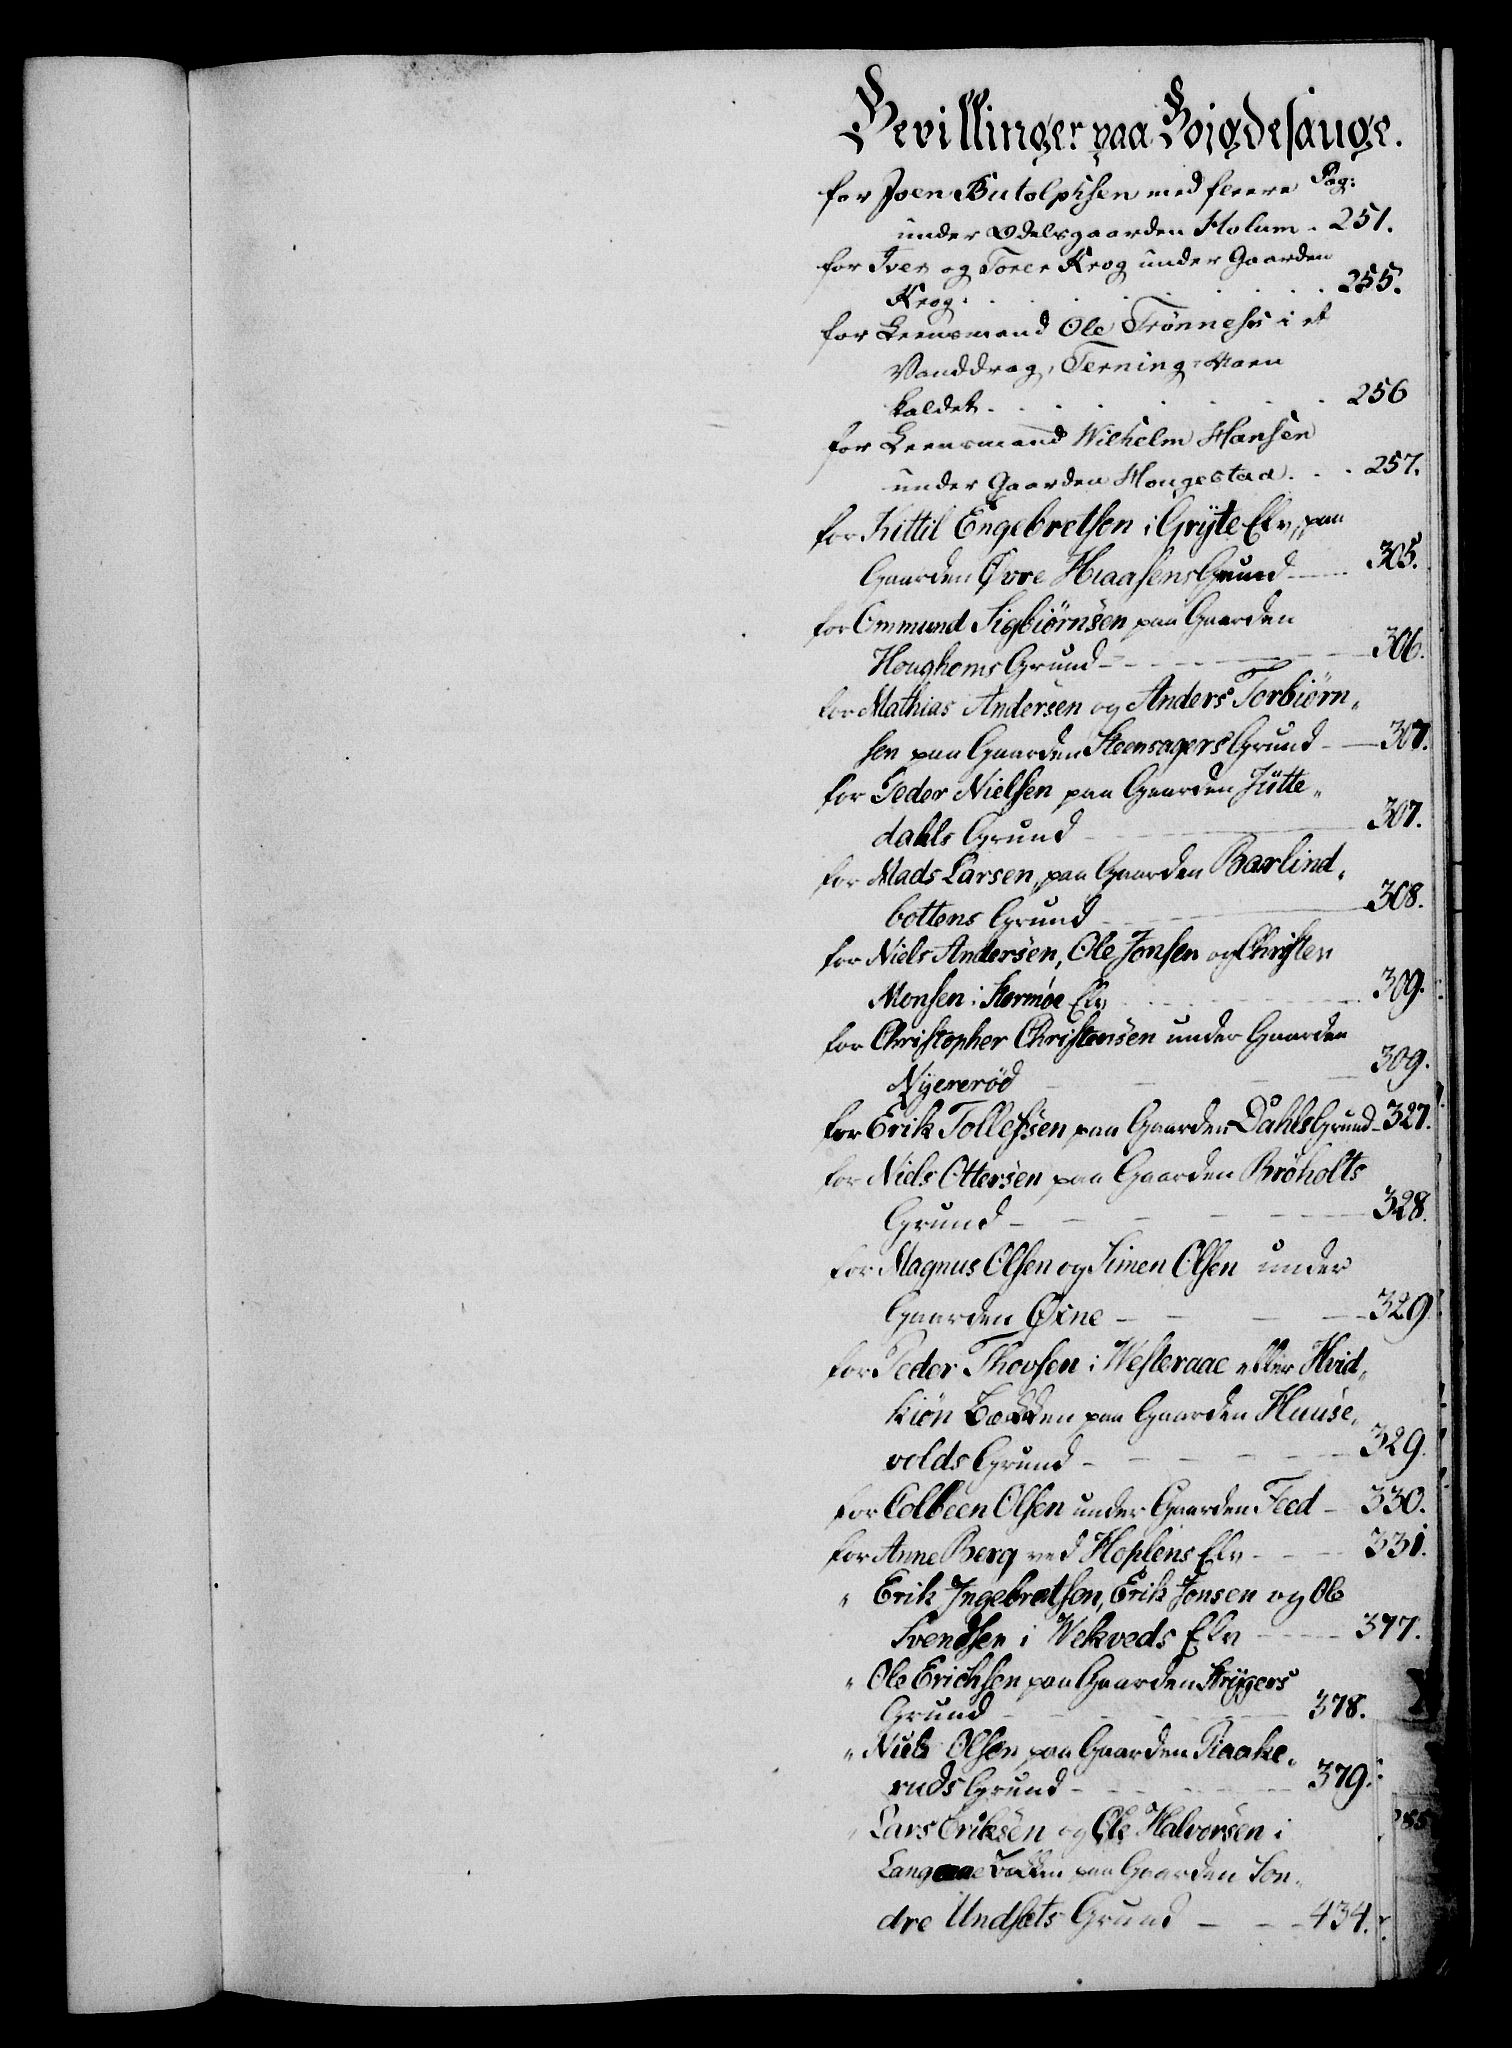 Bevillinger paa Boigdesauge.
for Joen Butolphsen med fleere Pag:
under Odelsgaarden Holum . 251.
for Iver og Torer Krog under Gaarden
Krog . . . . . . . 255.
for Leensmand Ole Trønness i et
Vanddrag, Terning-Aaen
kaldet . . . . . . 256
for Leensmand Wilhelm Hansen
under Gaarden Hougestad . . . 257.
for Kittil Engebretsen i Gryte Elv, paa
Gaarden Øvre Haasens Grund — 305.
for Ommund Sigbiørnsen paa Gaarden
Houghoms Grund - - - - - 306.
for Mathias Andersen og Anders Torbiørn„
sen paa Gaarden Steensagers Grund - — 307.
for Peder Nielsen paa Gaarden Jütte„
dahls Grund - - - - - 307.
for Mads Larsen, paa Gaarden Barlind„
bottens Grund - - - - 308.
for Niels Andersen, Ole Jonsen og Christen
Monsen i Stormoe Elv - - - - 309.
for Christopher Christensen under Gaarden
Nyererød - - - - 309.
for Erik Tollefsen paa Gaarden Dahls Grund - 327.
for Niels Ottersen paa Gaarden Brøholts
Grund - - - - - - 328.
for Magnus Olsen og Simen Olsen under
Gaarden Øxne - - - - 329
for Peder Thovsen i Westeraae eller Hvid„
kiøn Bækken paa Gaarden Huuse„
volds Grund - - - - - 329.
for Colbeen Olsen under Gaarden Feed - 330.
for Anne Berg ved Hoplens Elv - - - 331.
„ Erik Ingebretsen, Erik Jonsen og Ole
Svendsen i Wekveds Elv - - - - 377.
„ Ole Erichsen paa Gaarden Strygers
Grund - - - - - 378.
„ Niels Olsen paa Gaarden Raake„
ruds Grund - - - - - 379.
„ Lars Eriksen og Ole Halvorsen i
Langaae Bækken paa Gaarden Søn„
dre Undsets Grund - - - 434.